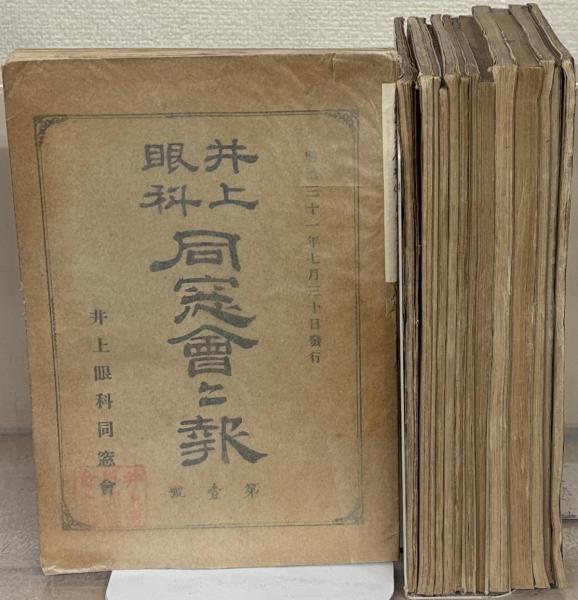 明治三十一年七月三十日發行
井上
眼科
同窓會々報
第壹號
井上眼科同窓會